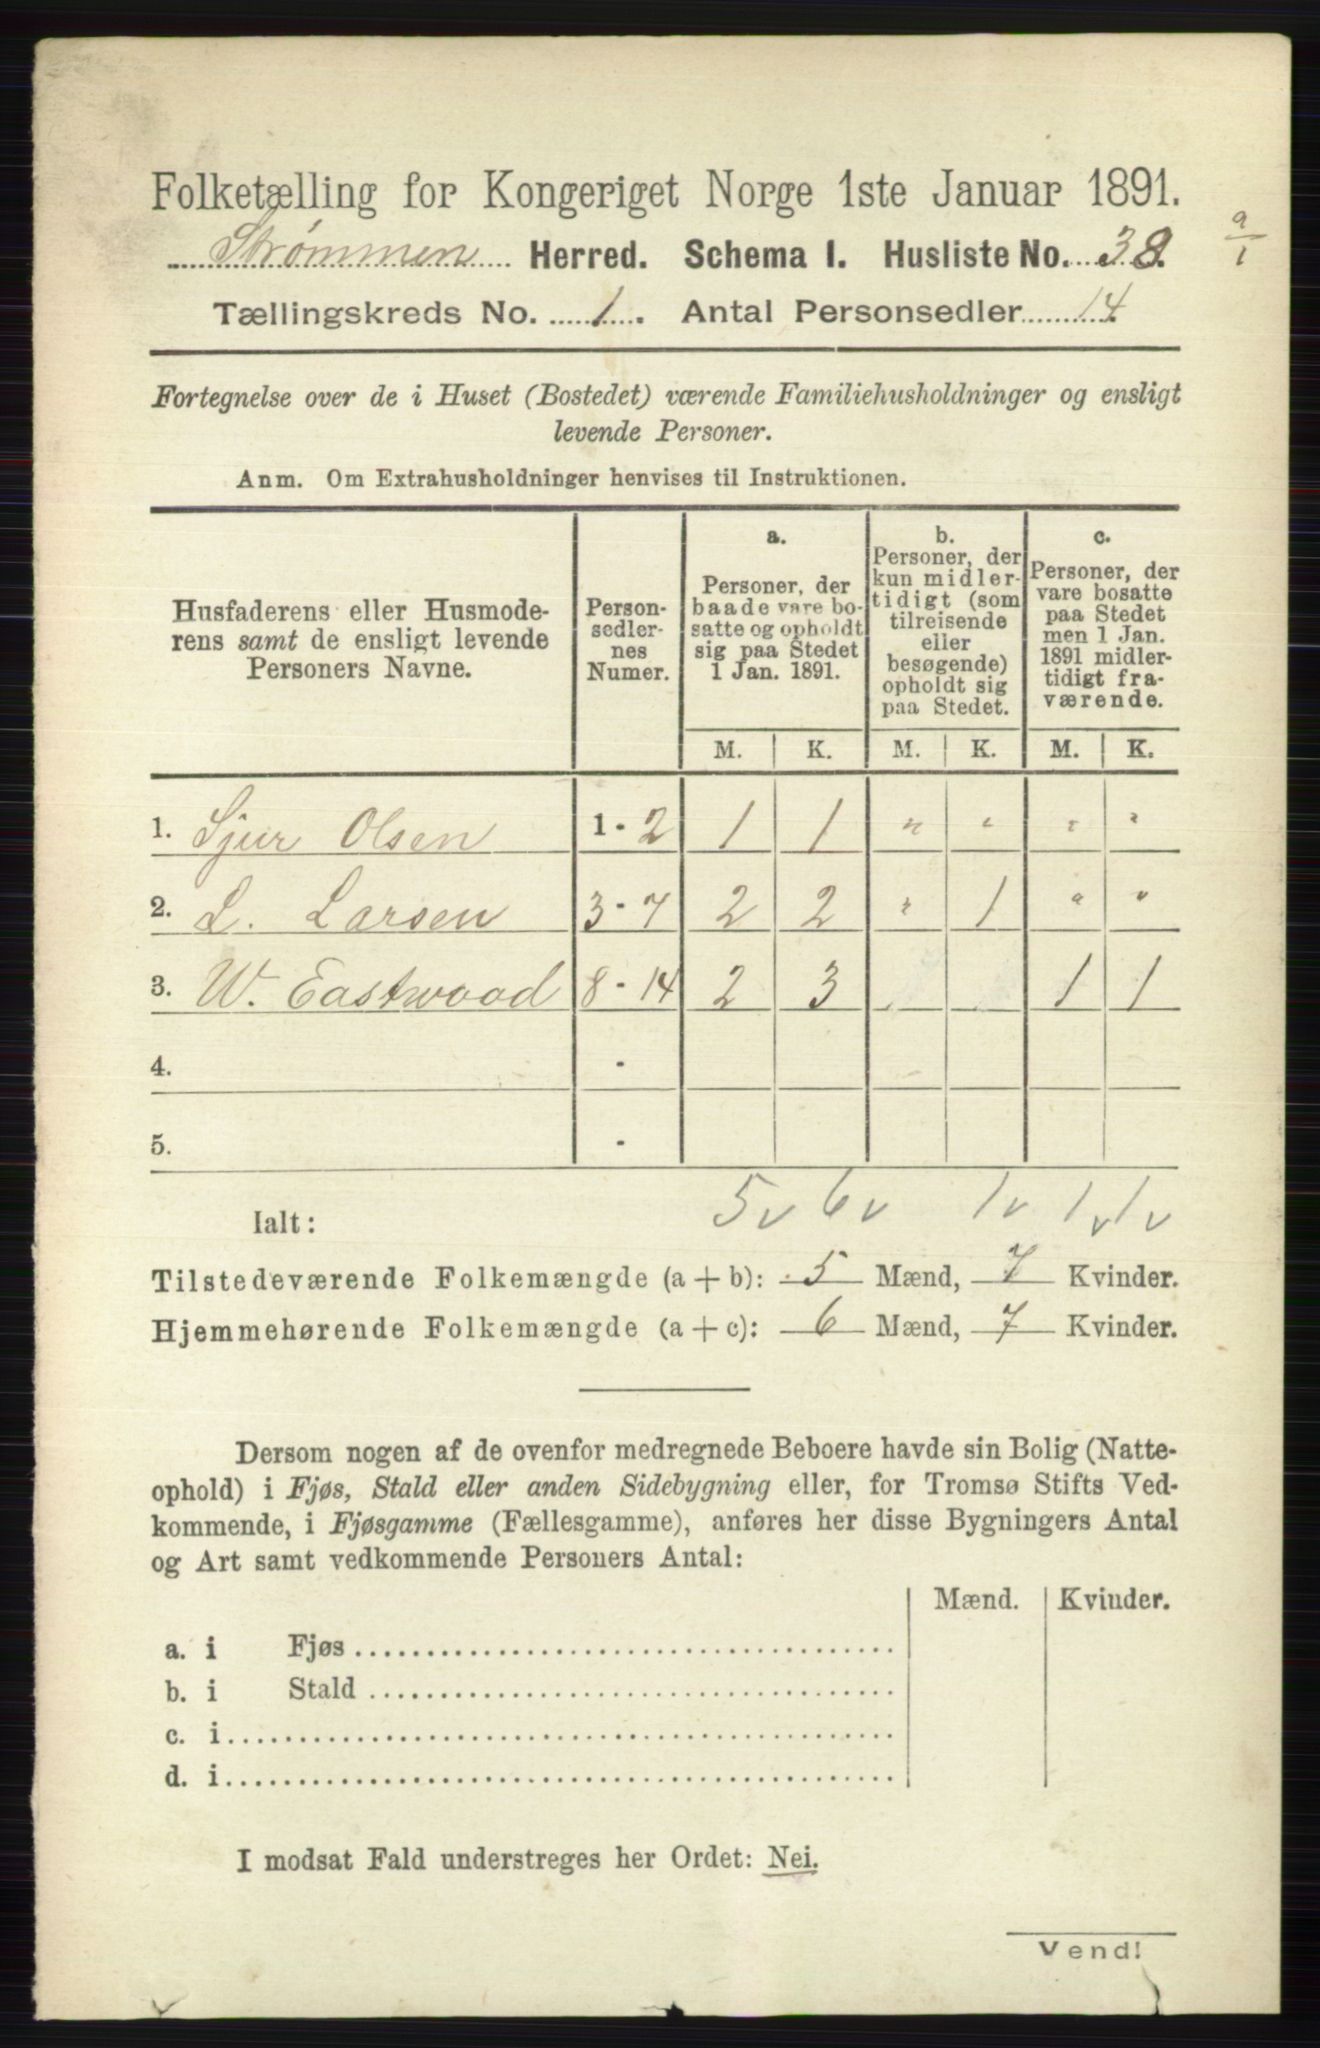 Folketælling for Kongeriget Norge 1ste Januar 1891.
Strømmen Herred. Schema I. Husliste No. 38.
9/1
Tællingskreds No. 1. Antal Personsedler 14
Fortegnelse over de i Huset (Bostedet) værende Familiehusholdninger og ensligt
levende Personer.
Anm. Om Extrahusholdninger henvises til Instruktionen.
Husfaderens eller Husmode-
rens samt de ensligt levende
Personers Navne.
Person-
sedler-
nes
Numer.
a.
Personer, der
baade vare bo-
satte og opholdt
sig paa Stedet
1 Jan. 1891.
b.
Personer, der
kun midler-
tidigt (som
tilreisende
eller
besøgende)
opholdt sig
paa Stedet.
c.
Personer, der
vare bosatte
paa Stedet
men 1 Jan.
1891 midler-
tidigt fra-
værende.
M. K. M. K. M. K.
1. Sjur Olsen 1 - 2 1 1 " " " "
2. L. Larsen 3 - 7 2 2 " 1 " "
3. W. Eastwood 8 - 14 2 3 . . 1 1
4. -
5. -
Ialt: 5 v 6 v 1 v 1 v 1 v
Tilstedeværende Folkemængde (a + b): 5 Mænd, 7 Kvinder.
Hjemmehørende Folkemængde (a + c): 6 Mænd, 7 Kvinder.
Dersom nogen af de ovenfor medregnede Beboere havde sin Bolig (Natte-
ophold) i Fjøs, Stald eller anden Sidebygning eller, for Tromsø Stifts Ved-
kommende, i Fjøsgamme (Fællesgamme), anføres her disse Bygningers Antal
og Art samt vedkommende Personers Antal:
Mænd. Kvinder.
a. i Fjøs
b. i Stald
c. i
d. i
I modsat Fald understreges her Ordet: Nei.
Vend!